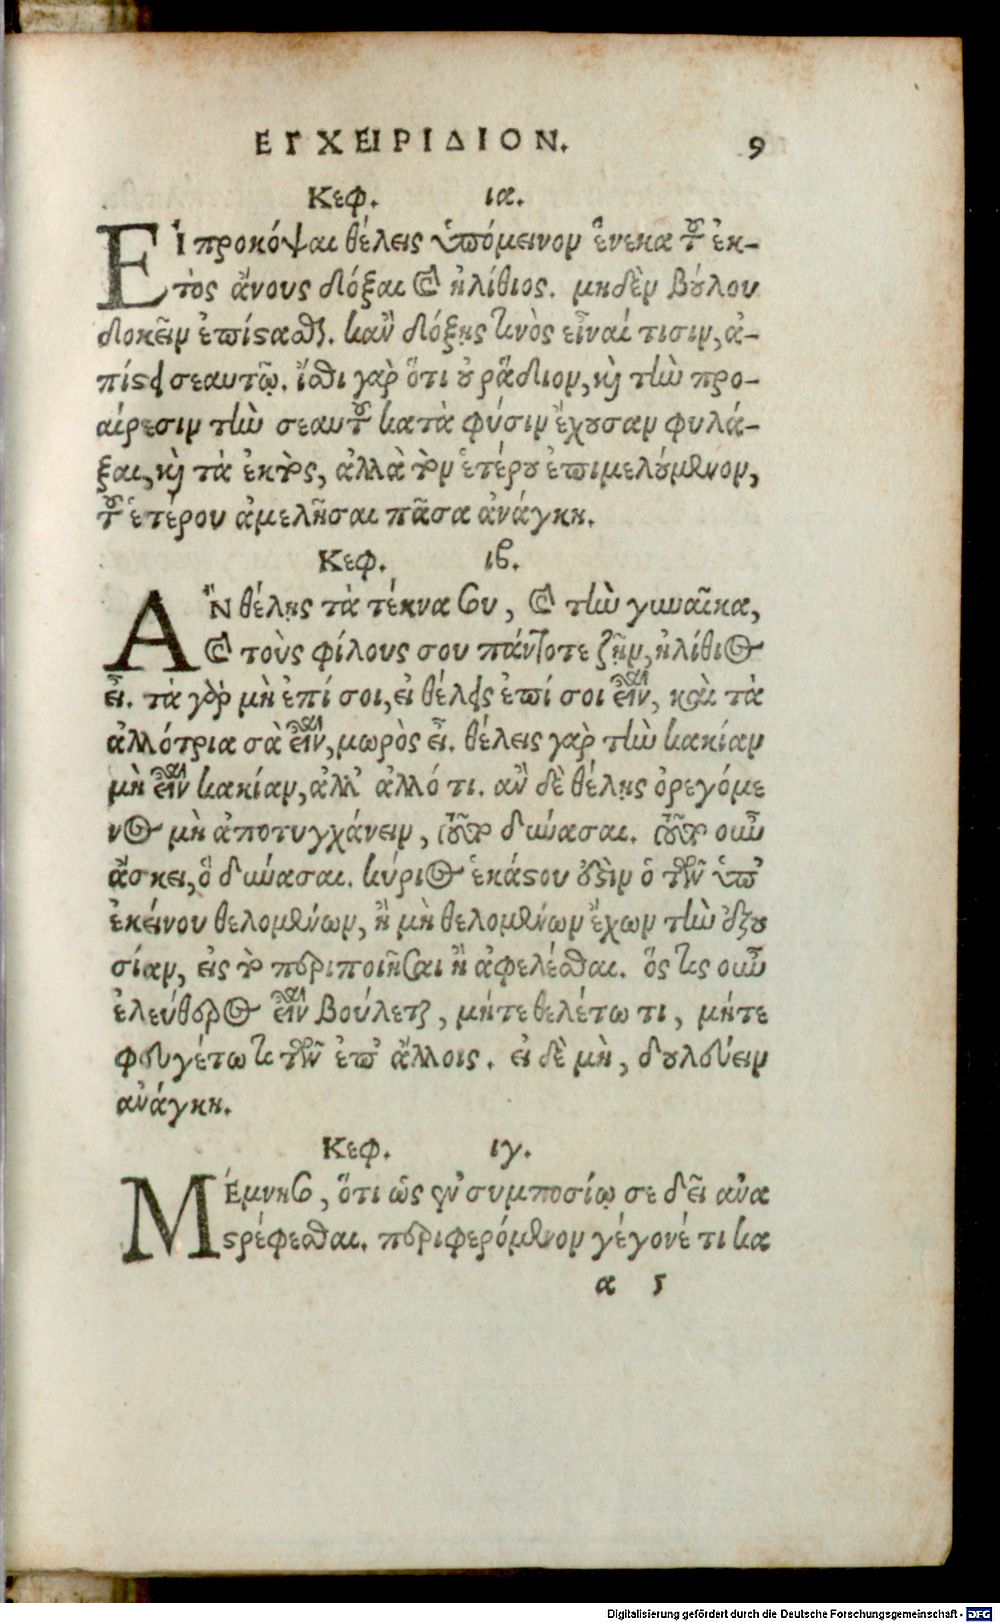 ΕΓΧΕΙΡΙΔΙΟΝ. 9
Κεφ. ια.
ΕἸ προκόψαι θέλεις ὑπόμεινον ἕνεκα τοῦ ἐκ-
τὸς ἄνους δόξαι καὶ ἠλίθιος. μηδὲν βούλου
δοκεῖν ἐπίστασθαι. κἂν δόξῃς τινὸς εἶναί τισιν, ἀ-
πίστει σεαυτῷ. ἴσθι γὰρ ὅτι οὐ ῥᾴδιον, καὶ τὴν προ-
αίρεσιν τὴν σεαυτοῦ κατὰ φύσιν ἔχουσαν φυλά-
ξαι, καὶ τὰ ἐκτὸς, ἀλλὰ τὸν ἑτέρου ἐπιμελούμενον,
τοῦ ἑτέρου ἀμελῆσαι πᾶσα ἀνάγκη.
Κεφ. ιβ.
ἊΝ θέλῃς τὰ τέκνα σου, καὶ τὴν γυναῖκα,
καὶ τοὺς φίλους σου πάντοτε ζῇν, ἠλίθιος
εἶ. τὰ γὰρ μὴ ἐπί σοι, εἰ θέλεις ἐπί σοι εἶναι, καὶ τὰ
ἀλλότρια σὰ εἶναι, μωρὸς εἶ. θέλεις γὰρ τὴν κακίαν
μὴ εἶναι κακίαν, ἀλλ' ἀλλό τι. ἂν δὲ θέλῃς ὀρεγόμε
νος μὴ ἀποτυγχάνειν, τοῦτο δύνασαι. τοῦτο οὖν
ἄσκει, ὃ δύνασαι. κύριος ἑκάστου ἐστὶν ὁ τῶν ὑπ'
ἐκείνου θελομένων, ἢ μὴ θελομένων ἔχων τὴν ἐξου
σίαν, εἰς τὸ περιποιῆσαι ἢ ἀφελέσθαι. ὅς τις οὖν
ἐλεύθερος εἶναι βούλεται, μήτε θελέτω τι, μήτε
φευγέτω τι τῶν ἐπ' ἄλλοις. εἰ δὲ μὴ, δουλεύειν
ἀνάγκη.
Κεφ. ιγ.
ΜΈμνησο, ὅτι ὡς ἐν συμποσίῳ σε δεῖ ἀνα
στρέφεσθαι. περιφερόμενον γέγονέ τι κα
α 5
Digitalisierung gefördert durch die Deutsche Forschungsgemeinschaft - DFG